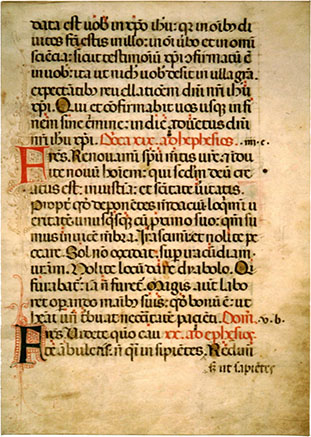 data est uob in xpo ihu: qr in oib di
uites fci estis in illo: in oi ubo et in omi
scientia: sicut testimoniu xpi ofirmatu e
in uob: ita ut nich uob desit in ulla gra.
expectatib reuelatioem dni nri ihu
xpi. Qui et confirmabit uos usq in fi
nem sine crimine: in die aduetus dni
nri ihu xpi. Dnica xix. ad ephesios. .iiii. c.
Fres. Renouamini spu mtis ure: et idu
ite nouu hoiem: qui scdm deu cre
atus est: in iustitia: et scitate ueritatis.
Propt qd deponetes medaciu loqmi u
eritate unusqsq cu proximo suo: qm su
mus inuice mbra. Irascimi et nolite pe
ccare. Sol no occidat sup iracudiam
uram. Nolite locu dare dyabolo. Qi
furabat: ia n furet. Magis aut labo
ret opando manib suis: qd bonu e: ut
heat un tbuat necessitate patieti. Dom. v. b.
Fres Videte quo cau xx. ad ephesios
te abuletis: n qi insipietes. Redimi
s ut sapietes